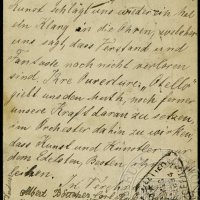 Kunst schlägt uns wieder ein mal
ein Klang an die Ohren, welcher
uns sagt, dass Verstand und
Fantasie noch nicht verloren
sind. Ihre Ouverture "Othello"
giebt uns den Muth noch ferner
unsere Kraft daran zu setzen,
im Orchester dahin zu wirken,
dass Kunst und Künstler
dem Edelsten, Besten
In
Alfred